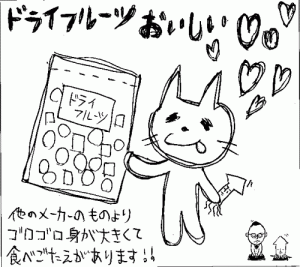 ドライフルーツ おいしい
ドライ
フルーツ
他のメーカーのものより
ゴロゴロ身が大きくて
食べごたえがあります!!